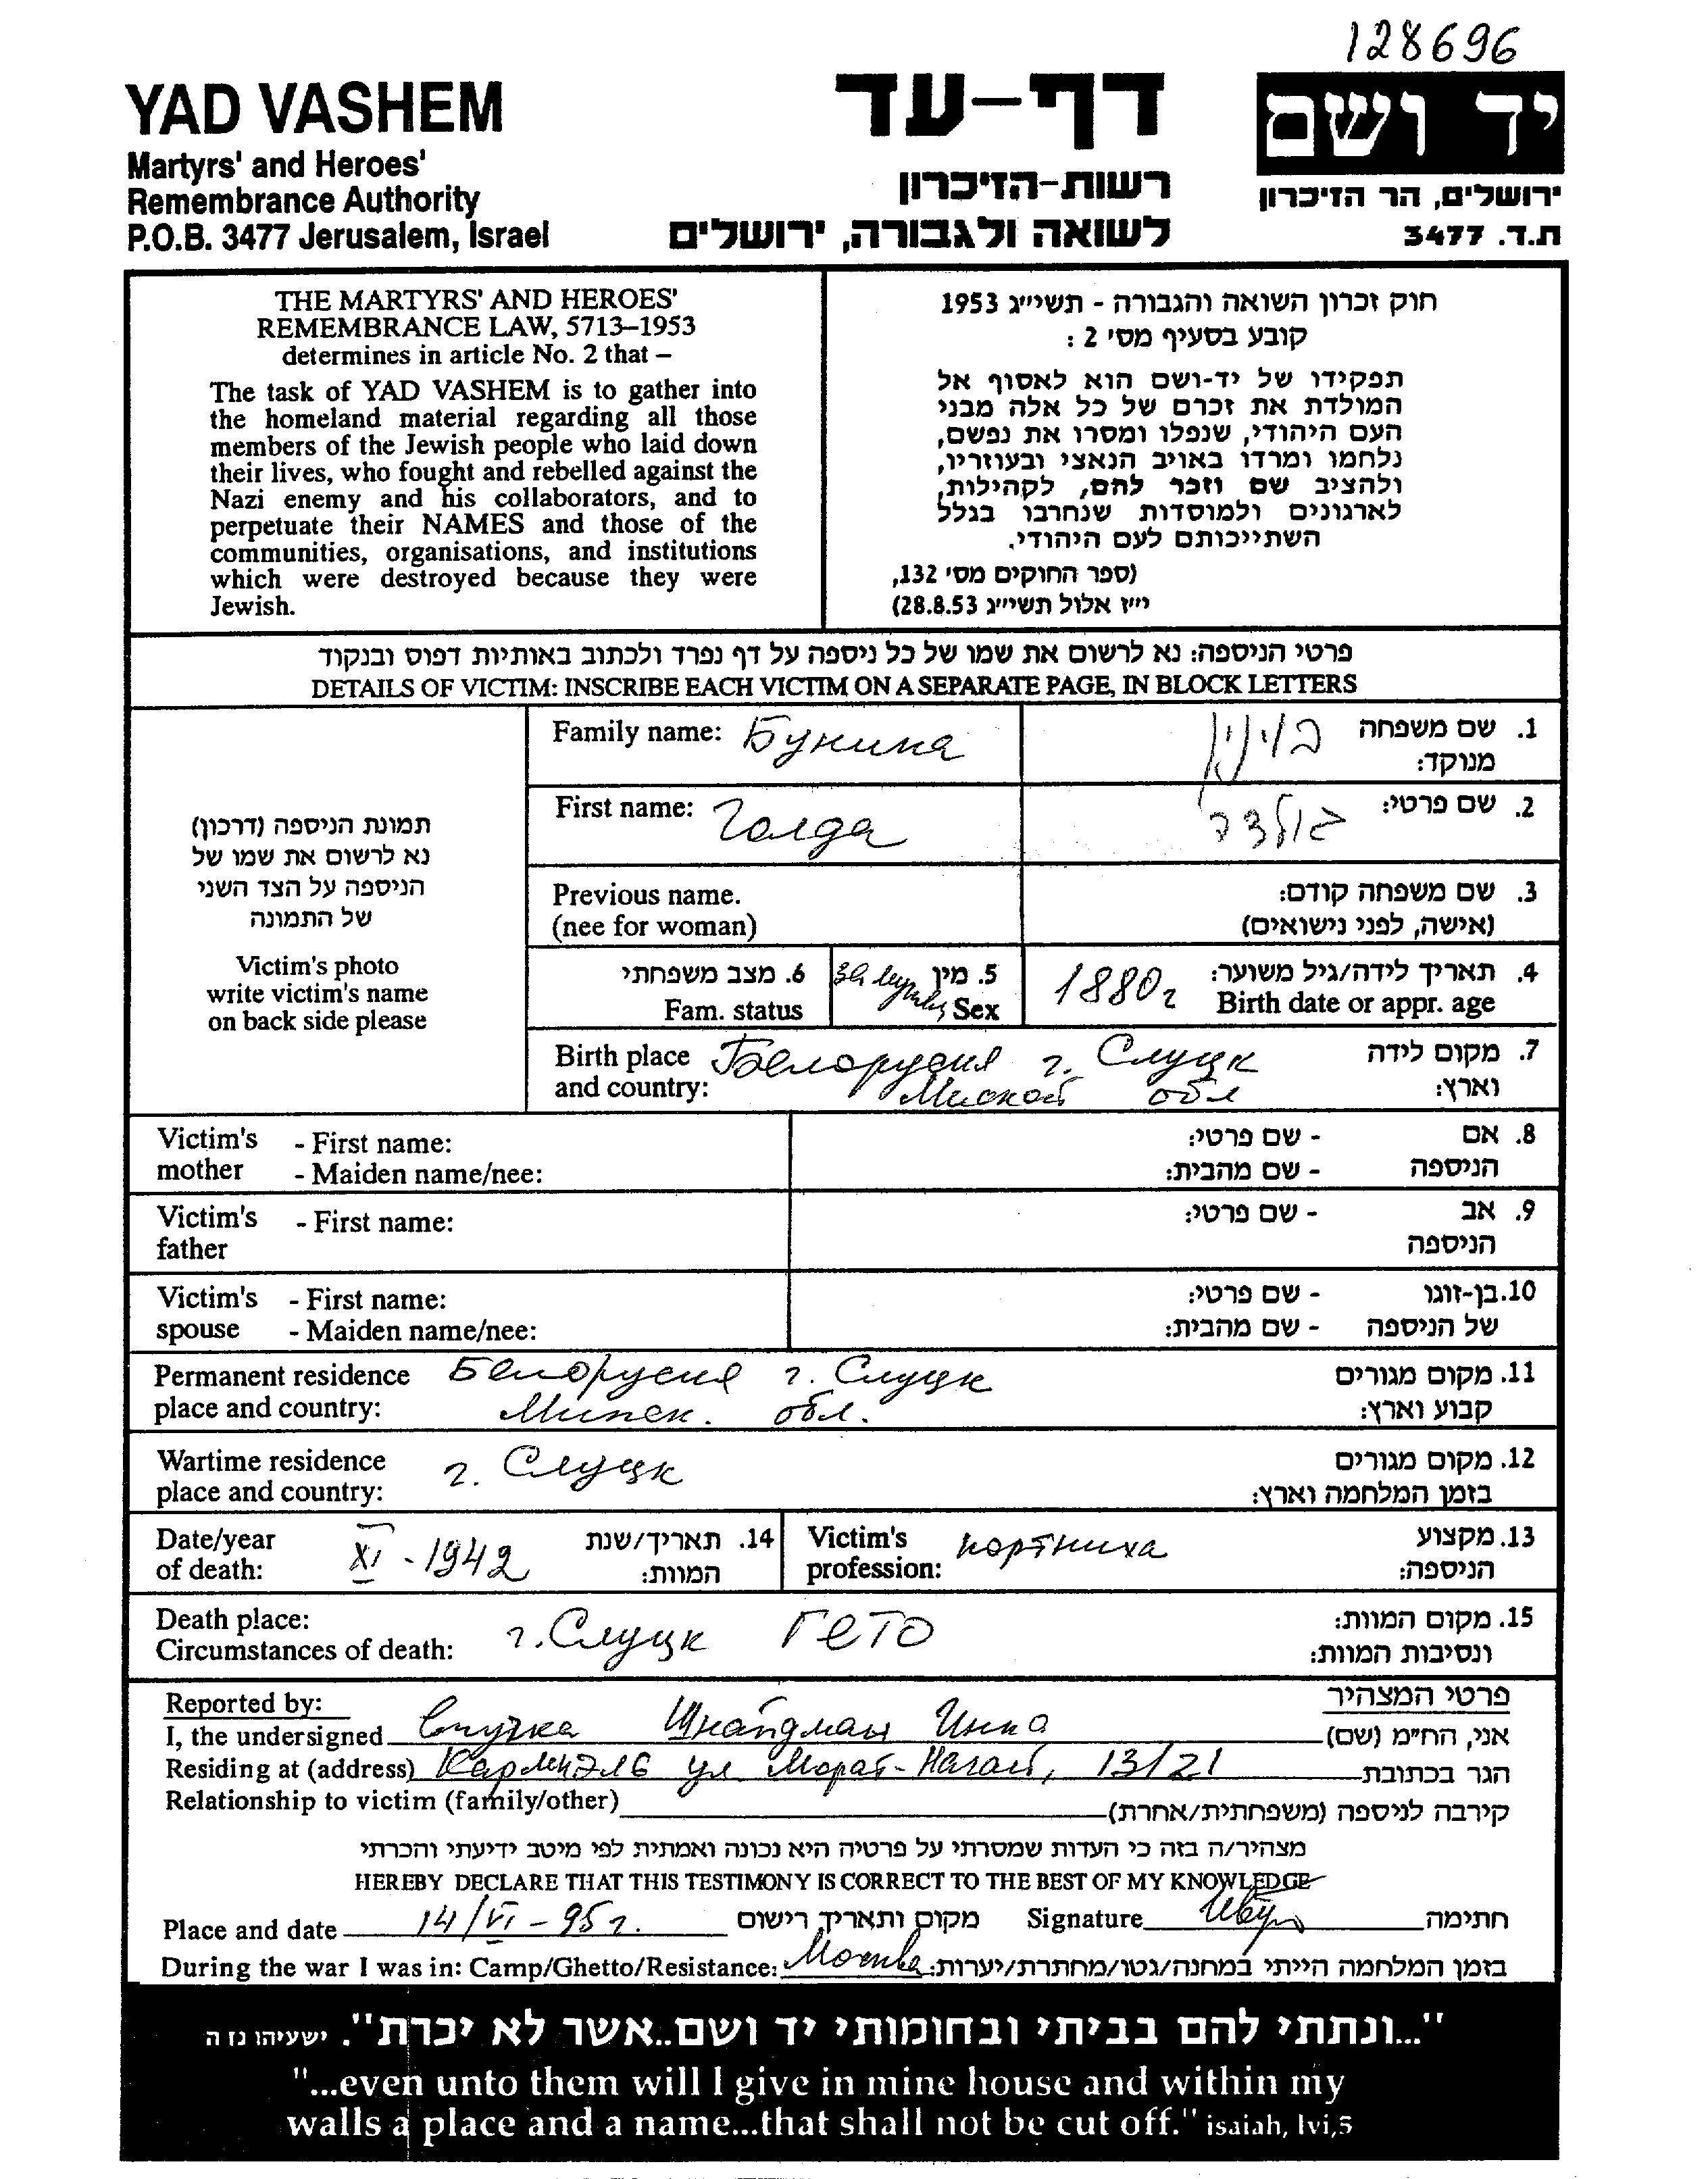 128696
YAD VASHEM
Martyrs' and Heroes'
Remembrance Authority
P.O.B. 3477 Jerusalem, Israel
דף-עד
רשות-הזיכרון
לשואה ולגבורה, ירושלים
יד ושם
ירושלים, הר הזיכרון
ת.ד. 3477
THE MARTYRS' AND HEROES'
REMEMBRANCE LAW, 5713–1953
determines in article No. 2 that –
The task of YAD VASHEM is to gather into
the homeland material regarding all those
members of the Jewish people who laid down
their lives, who fought and rebelled against the
Nazi enemy and his collaborators, and to
perpetuate their NAMES and those of the
communities, organisations, and institutions
which were destroyed because they were
Jewish.
חוק זכרון השואה והגבורה - תשי״ג 1953
קובע בסעיף מס׳ 2 :
תפקידו של יד-ושם הוא לאסוף אל
המולדת את זכרם של כל אלה מבני
העם היהודי, שנפלו ומסרו את נפשם,
נלחמו ומרדו באויב הנאצי ובעוזריו,
ולהציב שם וזכר להם, לקהילות,
לארגונים ולמוסדות שנחרבו בגלל
השתייכותם לעם היהודי.
(ספר החוקים מס׳ 132,
י״ז אלול תשי״ג 28.8.53)
פרטי הניספה: נא לרשום את שמו של כל ניספה על דף נפרד ולכתוב באותיות דפוס ובנקוד
DETAILS OF VICTIM: INSCRIBE EACH VICTIM ON A SEPARATE PAGE, IN BLOCK LETTERS
תמונת הניספה (דרכון)
נא לרשום את שמו של
הניספה על הצד השני
של התמונה
Victim's photo
write victim's name
on back side please
Family name: Бунина
בונין
1. שם משפחה
מנוקד:
First name: Голда
גולדה
2. שם פרטי:
Previous name.
(nee for woman)
3. שם משפחה קודם:
(אישה, לפני נישואים)
6. מצב משפחתי
Fam. status
5. מין
Sex
1880г
4. תאריך לידה/גיל משוער:
Birth date or appr. age
Birth place
and country:
Белорусия г. Слуцк
Минской обл
7. מקום לידה
וארץ:
Victim's mother - First name:
- Maiden name/nee:
8. אם הניספה - שם פרטי:
- שם מהבית:
Victim's father - First name:
9. אב הניספה - שם פרטי:
Victim's spouse - First name:
- Maiden name/nee:
10. בן-זוגו של הניספה - שם פרטי:
- שם מהבית:
Permanent residence
place and country:
Белорусия г. Слуцк
Минск. обл.
11. מקום מגורים
קבוע וארץ:
Wartime residence
place and country:
г. Слуцк
12. מקום מגורים
בזמן המלחמה וארץ:
Date/year
of death:
XI - 1942
14. תאריך/שנת
המוות:
Victim's
profession:
портниха
13. מקצוע
הניספה:
Death place:
Circumstances of death:
г. Слуцк гето
15. מקום המוות:
ונסיבות המוות:
Reported by:
פרטי המצהיר
I, the undersigned Внучка Шнайдман Инна אני, הח״מ (שם)
Residing at (address) Кармиэль ул. Морат-Нагай, 13/21 הגר בכתובת
Relationship to victim (family/other) קירבה לניספה (משפחתית/אחרת)
מצהיר/ה בזה כי העדות שמסרתי על פרטיה היא נכונה ואמתית לפי מיטב ידיעתי והכרתי
HEREBY DECLARE THAT THIS TESTIMONY IS CORRECT TO THE BEST OF MY KNOWLEDGE
Place and date 14/VI - 95г. מקום ותאריך רישום Signature חתימה
During the war I was in: Camp/Ghetto/Resistance: Москва בזמן המלחמה הייתי במחנה/גטו/מחתרת/יערות:
"...ונתתי להם בביתי ובחומותי יד ושם..אשר לא יכרת". ישעיהו נז ה
"...even unto them will I give in mine house and within my
walls a place and a name...that shall not be cut off." isaiah, lvi,5